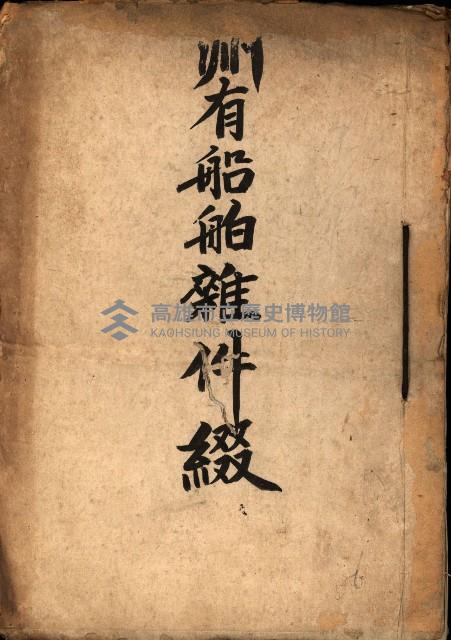 州有船舶雜件綴
高雄市立歷史博物館
KAOHSIUNG MUSEUM OF HISTORY